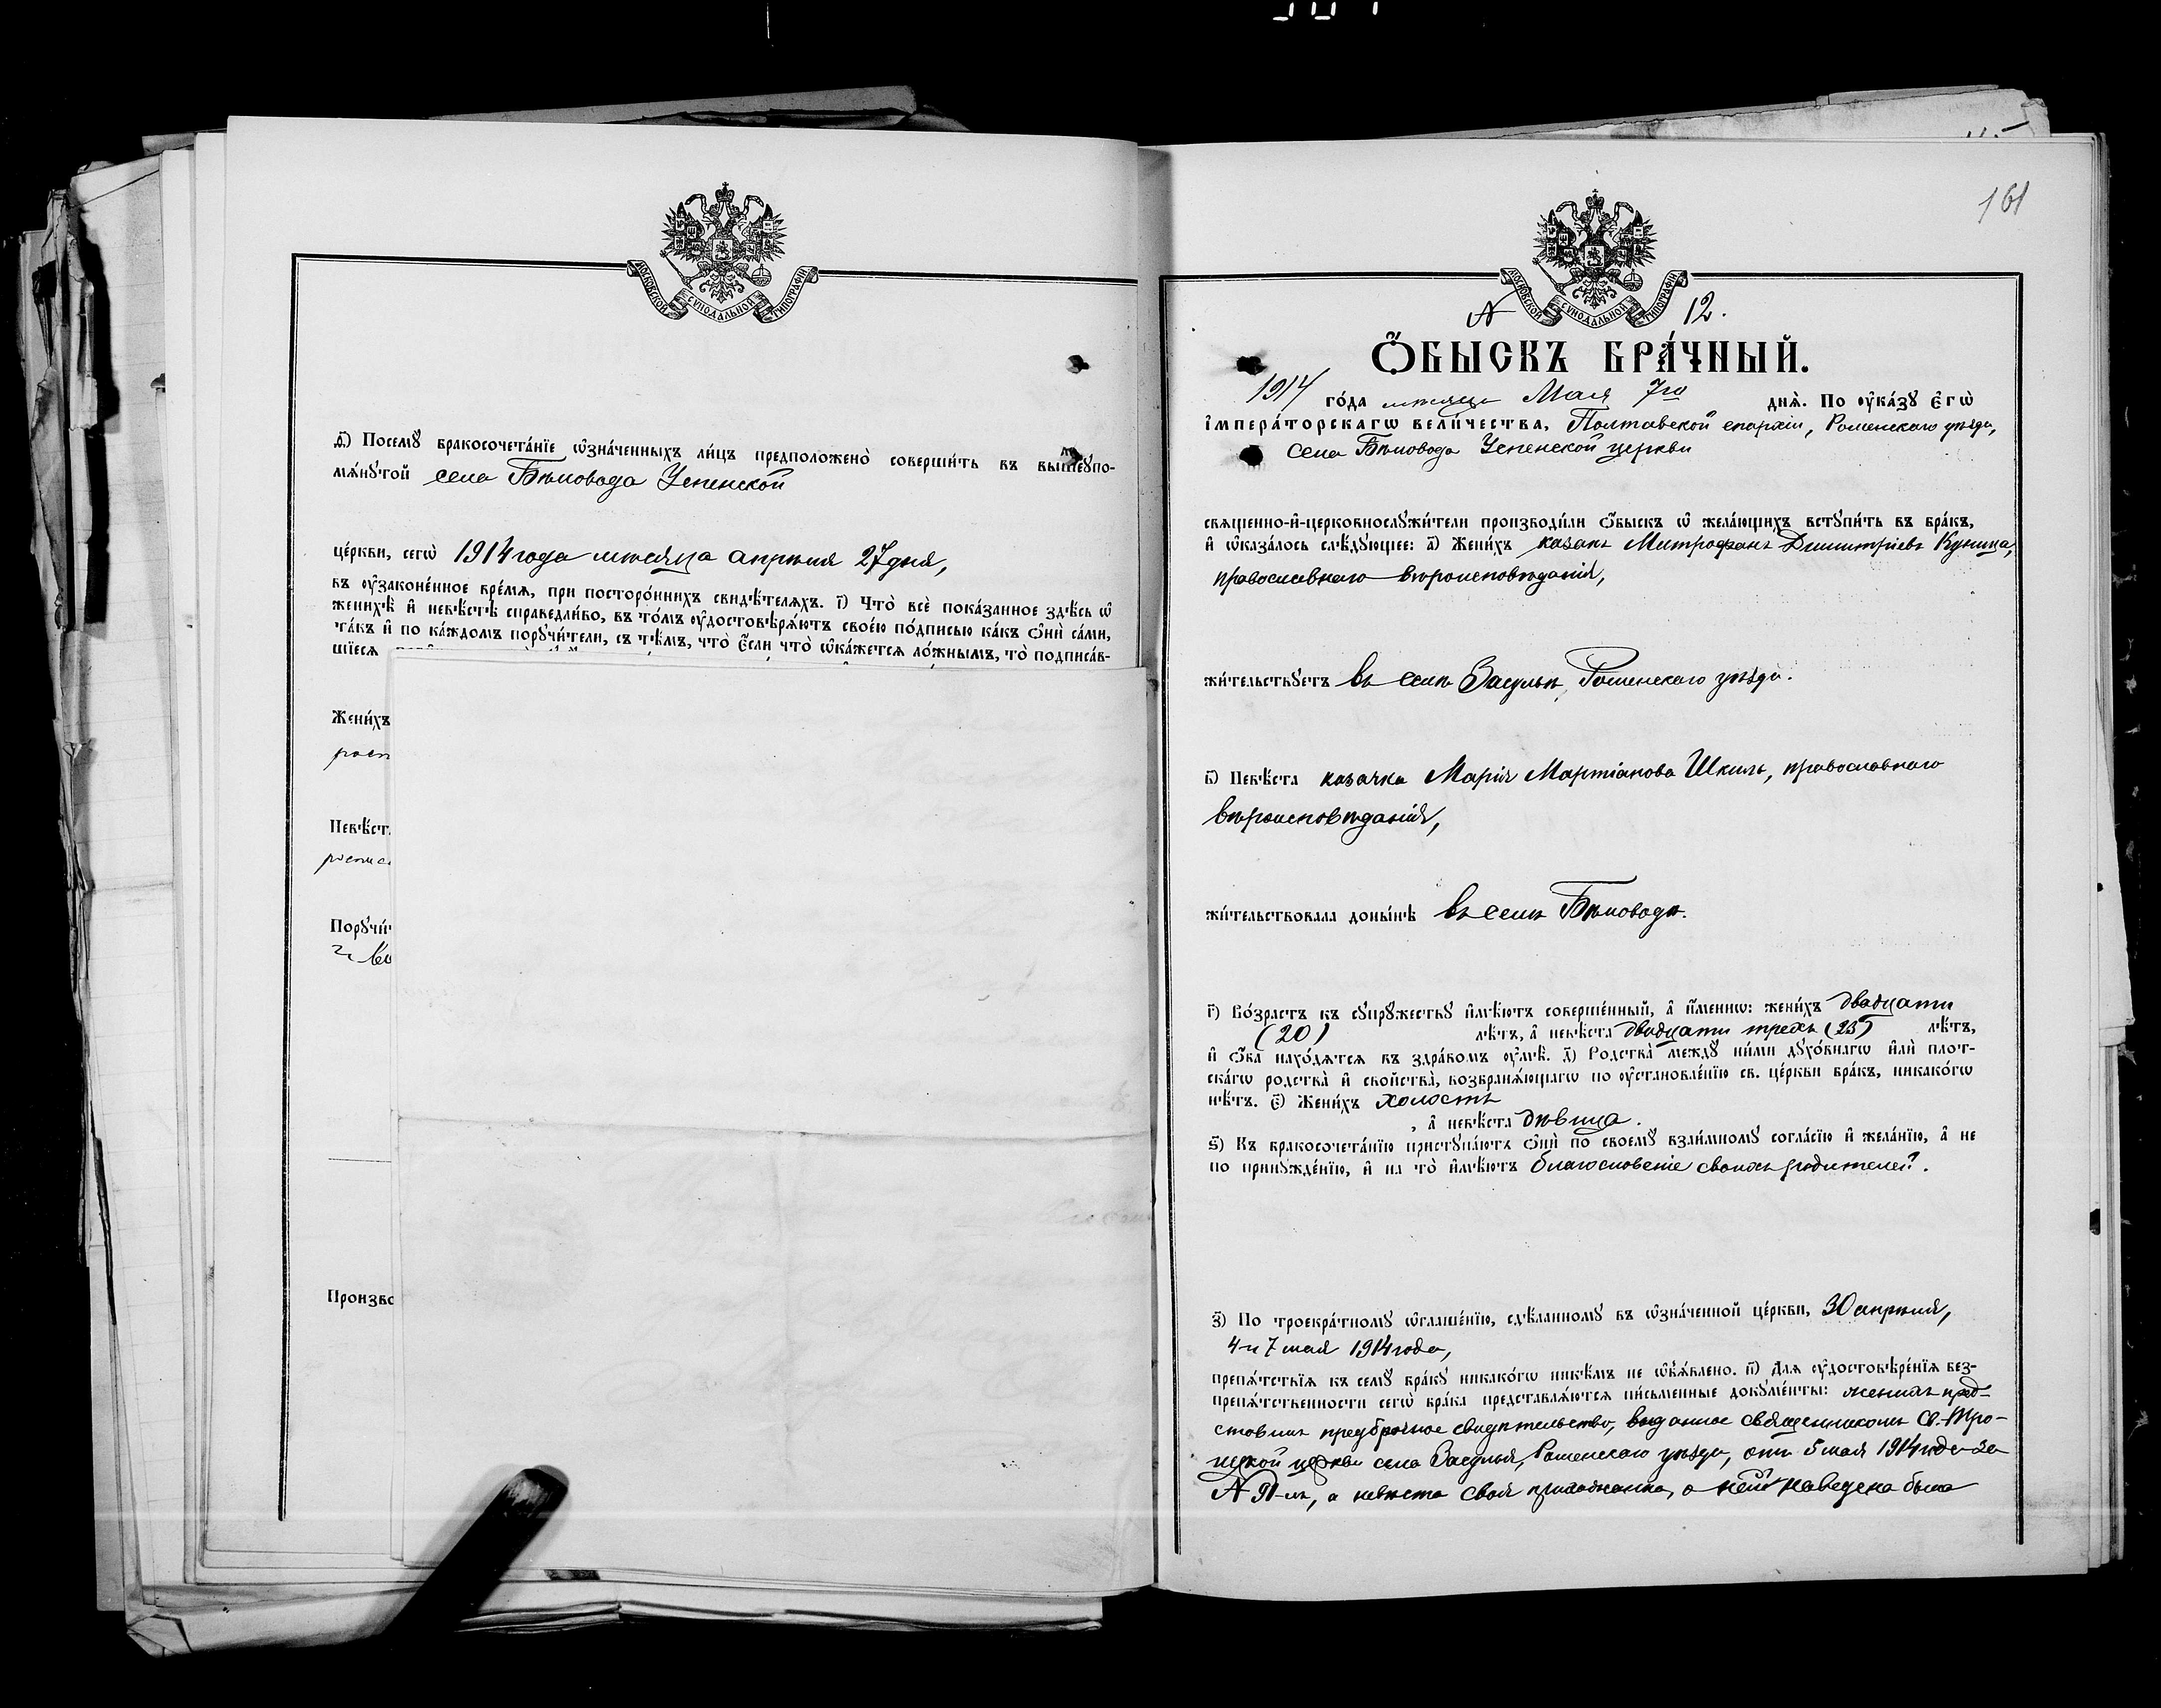 МОСКОВСКОЙ СѴНОДАЛЬНОЙ ТИПОГРАФІИ
ѳ҃) Посемꙋ̀ бракосочета́нїе ѡ҆зна́ченныхъ ли́цъ предположено̀ соверши́ть въ вышеꙋпо-
мѧ́нꙋтой села Бѣловода Успенской
це́ркви, сегѡ̀ 1914 года мѣсяца апрѣля 27 дня,
въ ᲂу҆законе́нное вре́мѧ, при посторо́ннихъ свидѣ́телѧхъ. і҃) Что̀ всѐ пока́занное здѣ́сь ѡ҆
женихѣ̀ и҆ невѣ́стѣ справедли́во, въ то́мъ ᲂу҆достовѣрѧ́ютъ свое́ю по́дписью ка́къ ѻ҆нѝ са́ми,
та́къ и҆ по ка́ждомъ порꙋчи́тели, съ тѣ́мъ, что̀ є҆́сли что̀ ѡ҆ка́жетсѧ ло́жнымъ, то̀ подписа́в-
шїесѧ
Жени́хъ
росп
Невѣ́ст
роспис
Порꙋчи́
Произво
161
МОСКОВСКОЙ СѴНОДАЛЬНОЙ ТИПОГРАФІИ
№ 12.
Ѻ҆́БЫСКЪ БРА́ЧНЫЙ.
1914 го́да мѣсяца Мая 7го днѧ̀. По ᲂу҆ка́зꙋ Є҆гѡ̀
і҆мпера́торскагѡ вели́чества, Полтавской епархіи, Роменскаго уѣзда,
села Бѣловода Успенской церкви
свѧщенно-и҆-церковнослꙋжи́тели производи́ли ѻ҆́быскъ ѡ҆ жела́ющихъ встꙋпи́ть въ бра́къ,
и҆ ѡ҆каза́лось слѣ́дꙋющее: а҃) Жени́хъ казакъ Митрофанъ Димитріевъ Куница,
православнаго вѣроисповѣданія,
жи́тельствꙋетъ въ селѣ Засульѣ, Роменскаго уѣзда.
в҃) Невѣ́ста казачка Марія Мартіанова Шкиль, православнаго
вѣроисповѣданія,
жи́тельствовала доны́нѣ въ селѣ Бѣловодѣ.
г҃) Во́зрастъ къ сꙋпрꙋ́жествꙋ и҆мѣ́ютъ соверше́нный, а҆ и҆́меннѡ: жени́хъ двадцати
(20) лѣ́тъ, а҆ невѣ́ста двадцати трехъ (23) лѣ́тъ,
и҆ ѻ҆́ба нахо́дѧтсѧ въ здра́вомъ ᲂу҆мѣ̀. д҃) Родства̀ междꙋ̀ ни́ми дꙋхо́внагѡ и҆лѝ плот-
ска́гѡ родства̀ и҆ свойства̀, возбранѧ́ющагѡ по ᲂу҆становле́нїю св. це́ркви бра́къ, никако́гѡ
нѣ́тъ. є҃) Жени́хъ холостъ
, а҆ невѣ́ста дѣвица.
ѕ҃) Къ бракосочета́нїю пристꙋпа́ютъ ѻ҆нѝ по своемꙋ̀ взаи́мномꙋ согла́сїю и҆ жела́нїю, а҆ не
по принꙋжде́нїю, и҆ на то̀ и҆мѣ́ютъ благословеніе своихъ родителей.
з҃) По троекра́тномꙋ ѡ҆глаше́нїю, сдѣ́ланномꙋ въ ѡ҆зна́ченной це́ркви, 30 апрѣля,
4 и 7 мая 1914 года,
препѧ́тствїѧ къ семꙋ̀ бра́кꙋ никако́гѡ никѣ́мъ не ѡ҆б̾ѧ́влено. и҃) Длѧ ᲂу҆достовѣре́нїѧ без-
препѧ́тственности сегѡ̀ бра́ка представлѧ́ютсѧ пи́сьменные докꙋме́нты: женихъ пред-
ставилъ предбрачное свидѣтельство, выданное священникомъ Св.-Тро-
ицкой церкви села Засулья, Роменскаго уѣзда, отъ 5 мая 1914 года за
№ 91-мъ, а невѣста своя прихожанка, о ней наведена была